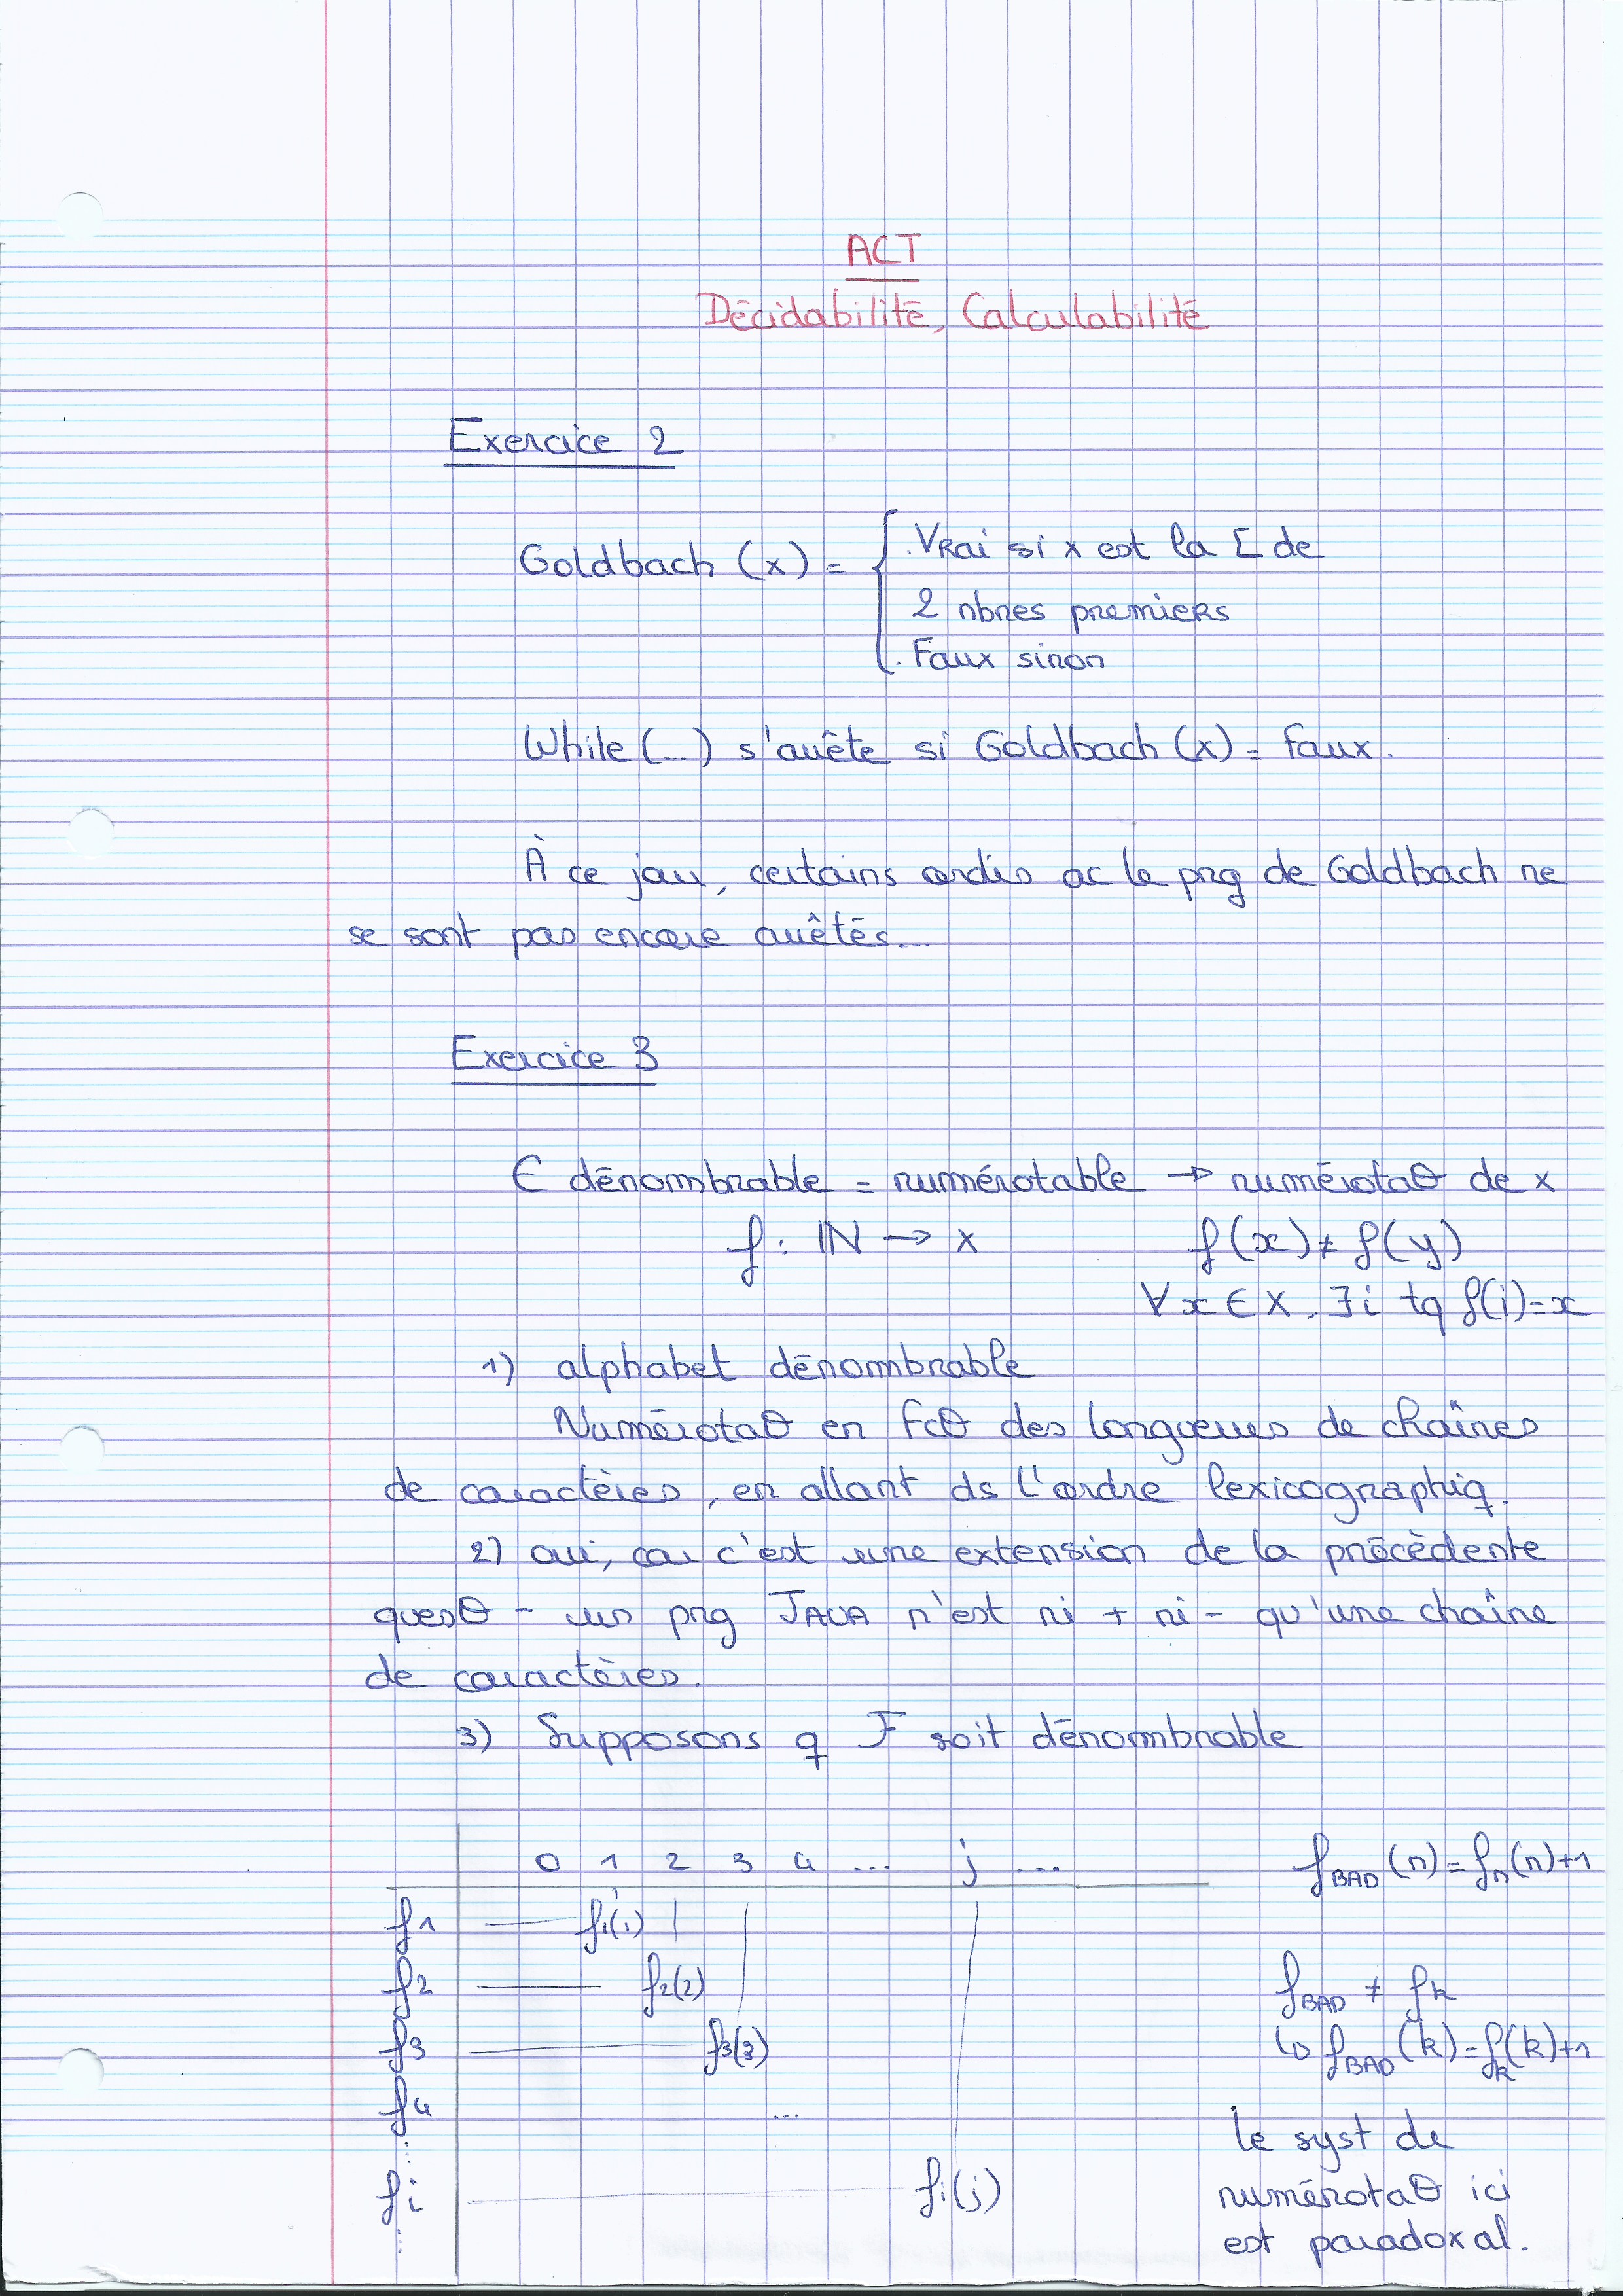 ACT
Décidabilité, Calculabilité
Exercice 2
Goldbach (x) = { . Vrai si x est la Σ de
2 nbres premiers
. Faux sinon
While (...) s'arrête si Goldbach (x) = faux.
À ce jour, certains ordis ac le prg de Goldbach ne
se sont pas encore arrêtés...
Exercice 3
E dénombrable = numérotable → numérotaθ de x
f : ℕ → x f(x) ≠ f(y)
∀ x ∈ X, ∃ i tq f(i) = x
1) alphabet dénombrable
Numérotaθ en fcθ des longueurs de chaînes
de caractères, en allant ds l'ordre lexicographiq.
2) oui, car c'est une extension de la précédente
quesθ - un prg JAVA n'est ni + ni - qu'une chaîne
de caractères.
3) Supposons q F soit dénombrable
0 1 2 3 4 ... j ... f_BAD (n) = f_n(n)+1
f1 f1(1)
f2 f2(2) f_BAD ≠ f_k
f3 f3(3) ↳ f_BAD (k) = f_k(k)+1
f4 ...
le syst de
fi fi(j) numérotaθ ici
... est paradoxal.